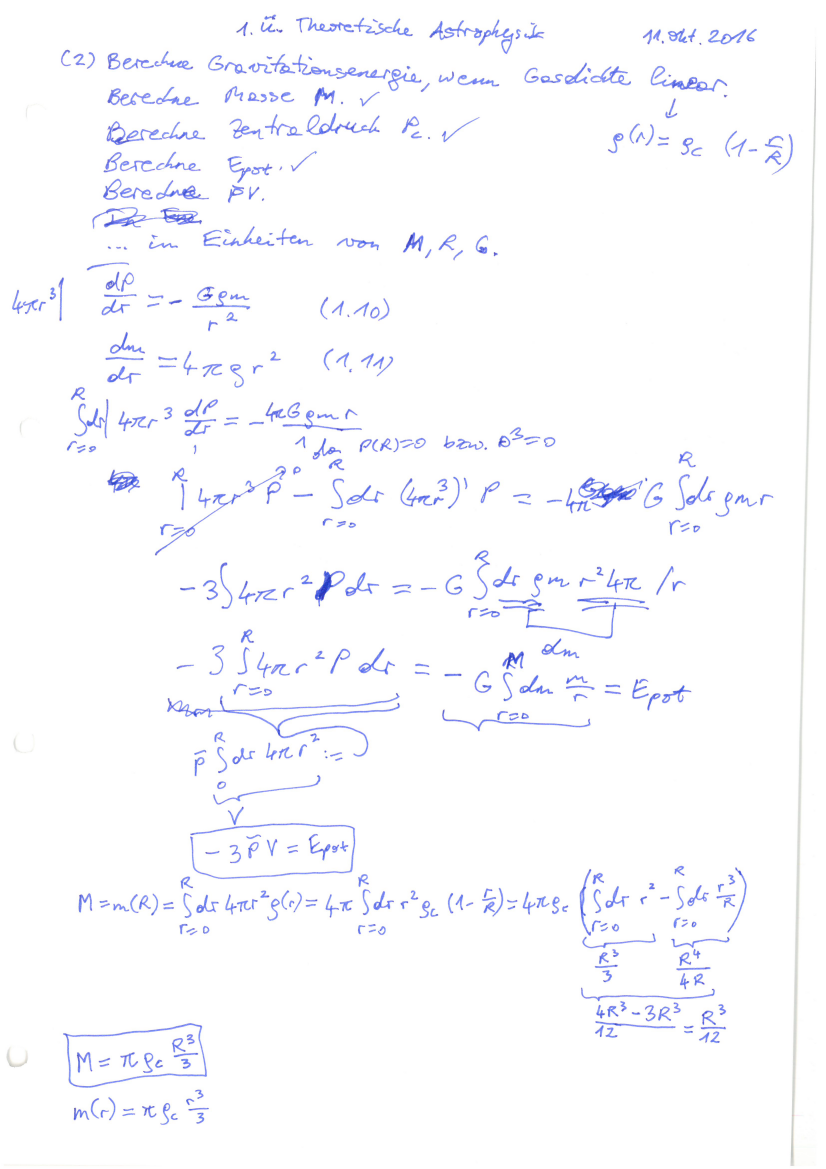 1. Ü. Theoretische Astrophysik 11. Okt. 2016
(2) Berechne Gravitationsenergie, wenn Gasdichte linear.
↓
ρ(r) = ρc (1 - r/R)
Berechne Masse M. ✓
Berechne Zentraldruck Pc. ✓
Berechne Epot. ✓
Berechne P̄V.
... in Einheiten von M, R, G.
4πr³| dP/dr = - Gρm/r² (1.10)
dm/dr = 4πρr² (1.11)
∫_{r=0}^{R} dr| 4πr³ dP/dr = - 4πGρmr/1
da P(R)=0 bzw. 0³=0
|_{r=0}^{R} 4πr³ P - ∫_{r=0}^{R} dr (4πr³)' P = -4π G ∫_{r=0}^{R} dr ρmr
-3∫4πr² P dr = -G ∫_{r=0}^{R} dr ρm r²4π /r
dm
-3 ∫_{r=0}^{R} 4πr² P dr = - G ∫_{r=0}^{M} dm m/r = Epot
p̄ ∫_{0}^{R} dr 4πr² :=
V
-3 P̄V = Epot
M = m(R) = ∫_{r=0}^{R} dr 4πr²ρ(r) = 4π ∫_{r=0}^{R} dr r²ρc (1 - r/R) = 4πρc (∫_{r=0}^{R} dr r² - ∫_{r=0}^{R} dr r³/R)
R³/3 R⁴/4R
4R³-3R³/12 = R³/12
M = πρc R³/3
m(r) = πρc r³/3